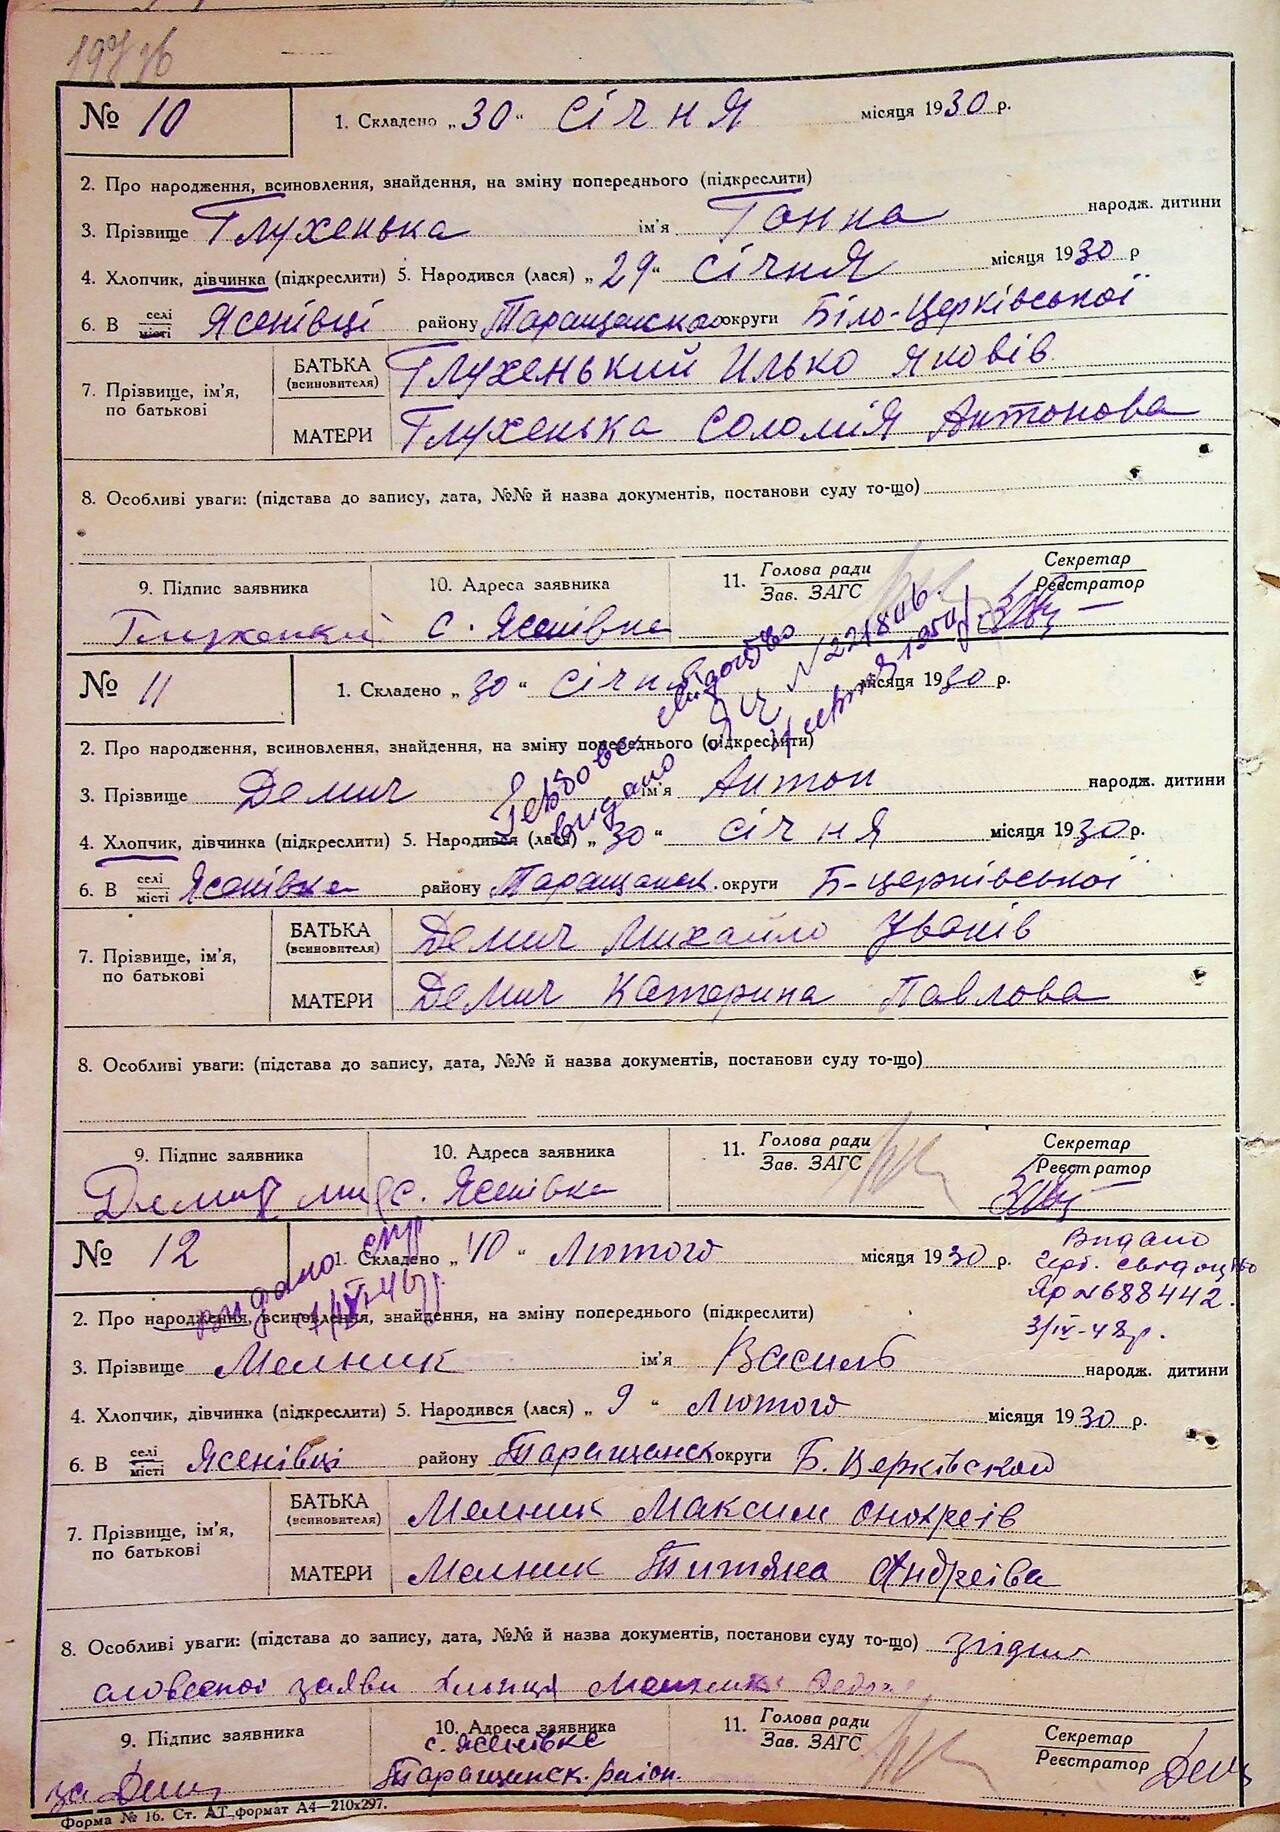 № 10 1. Складено „30“ січня місяця 1930 р.
2. Про народження, всиновлення, знайдення, на зміну попереднього (підкреслити)
3. Прізвище Глухенька ім'я Ганна народж. дитини
4. Хлопчик, дівчинка (підкреслити) 5. Народився (лася) „29“ січня місяця 1930 р
6. В селі місті Ясенівці району Таращанського округи Біло-Церківської
7. Прізвище, ім'я, по батькові
БАТЬКА (всиновителя) Глухенький Илько Яковів
МАТЕРИ Глухенька Соломія Антонова
8. Особливі уваги: (підстава до запису, дата, №№ й назва документів, постанови суду то-що)
9. Підпис заявника 10. Адреса заявника 11. Голова ради Зав. ЗАГС Секретар Реєстратор
с. Ясенівка
№ 11 1. Складено „30“ січня місяця 1930 р.
2. Про народження, всиновлення, знайдення, на зміну попереднього (підкреслити)
видано № 221806
3. Прізвище Демич ім'я Антон народж. дитини
4. Хлопчик, дівчинка (підкреслити) 5. Народився (лася) „30“ січня місяця 1930 р.
6. В селі місті Ясенівка району Таращанськ. округи Б-церківської
7. Прізвище, ім'я, по батькові
БАТЬКА (всиновителя) Демич Михайло Іванів
МАТЕРИ Демич Катерина Павлова
8. Особливі уваги: (підстава до запису, дата, №№ й назва документів, постанови суду то-що)
9. Підпис заявника 10. Адреса заявника 11. Голова ради Зав. ЗАГС Секретар Реєстратор
с. Ясенівка
№ 12 1. Складено „10“ лютого місяця 1930 р.
видано
Видано
Яр №688442.
3/IV-48р.
2. Про народження, всиновлення, знайдення, на зміну попереднього (підкреслити)
3. Прізвище Мельник ім'я Василь народж. дитини
4. Хлопчик, дівчинка (підкреслити) 5. Народився (лася) „9“ лютого місяця 1930 р.
6. В селі місті Ясенівці району Таращанськ округи Б. Церківської
7. Прізвище, ім'я, по батькові
БАТЬКА (всиновителя) Мельник Максим Онохреів
МАТЕРИ Мельник Титяна Андреіва
8. Особливі уваги: (підстава до запису, дата, №№ й назва документів, постанови суду то-що) згідно
словесної заяви
9. Підпис заявника 10. Адреса заявника 11. Голова ради Зав. ЗАГС Секретар Реєстратор
с. Ясенівка
Таращанськ. район.
Форма № 16. Ст. АТ формат А4—210х297.